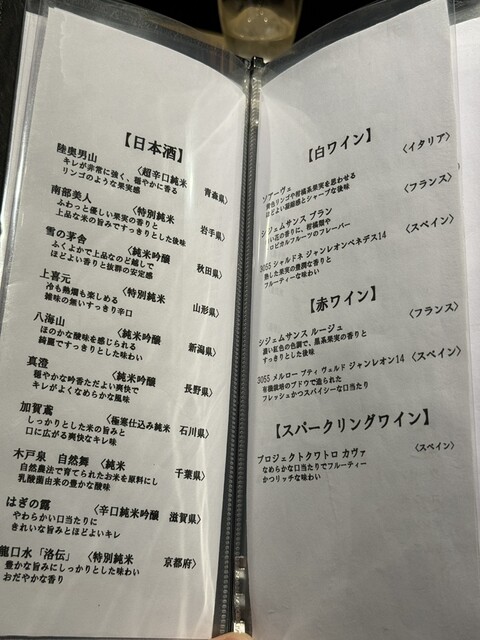 【日本酒】
陸奥男山 〈超辛口純米 青森県〉
キレが非常に強く、穏やかに香る
リンゴのような果実感
南部美人 〈特別純米 岩手県〉
ふわっと優しい果実の香りと
上品な米の旨みですっきりとした後味
雪の茅舎 〈純米吟醸 秋田県〉
ふくよかで上品なのど越しで
ほどよい香りと抜群の安定感
上喜元 〈特別純米 山形県〉
冷も熱燗も楽しめる
雑味の無いすっきり辛口
八海山 〈純米吟醸 新潟県〉
ほのかな酸味を感じられる
綺麗ですっきりとした味わい
真澄 〈純米吟醸 長野県〉
穏やかな吟香ただよい爽快で
キレがよくなめらかな風味
加賀鳶 〈極寒仕込み純米 石川県〉
しっかりとした米の旨みと
口に広がる爽快なキレ味
木戸泉 自然舞 〈純米 千葉県〉
自然農法で育てられたお米を原料にし
乳酸菌由来の豊かな酸味
はぎの露 〈辛口純米吟醸 滋賀県〉
やわらかい口当たりに
きれいな旨みとほどよいキレ
龍口水「洛伝」 〈特別純米 京都府〉
豊かな旨みにしっかりとした味わい
おだやかな香り
【白ワイン】
ソアーヴェ 〈イタリア〉
色リンゴや柑橘系果実を思わせる
ほどよい甜酸感とシャープな後味
シジェムサンス ブラン 〈フランス〉
い花の香りに、柑橘類や
ロピカルフルーツのフレーバー
3055 シャルドネ ジャンレオンペネデス14 〈スペイン〉
熟した果実の豊潤な香りと
フルーティーな味わい
【赤ワイン】
シジェムサンス ルージュ 〈フランス〉
濃い紅色の色調で、黒系果実の香りと
すっきりとした後味
3055 メルロー プティ ヴェルド ジャンレオン14 〈スペイン〉
有機栽培のブドウで造られた
フレッシュかつスパイシーな口当たり
【スパークリングワイン】
プロジェクトクワトロ カヴァ 〈スペイン〉
なめらかな口当たりでフルーティー
かつリッチな味わい